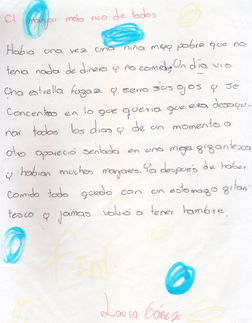 El manjar más rico de todos
Habia una vez una niña muy pobre que no
tenia nada de dinero y no comida. Un día vio
una estrella fugaz y serro sus ojos y se
Concentro en lo que queria que era desayu-
nar todos los dias y de un momento a
otro aparecio sentada en una mega gigantezca
y habian muchos manjares. Ya después de haber
comido todo quedo con un estomago gigan
tesco y jamas volvio a tener hambre.
FIN
Laura Gómez